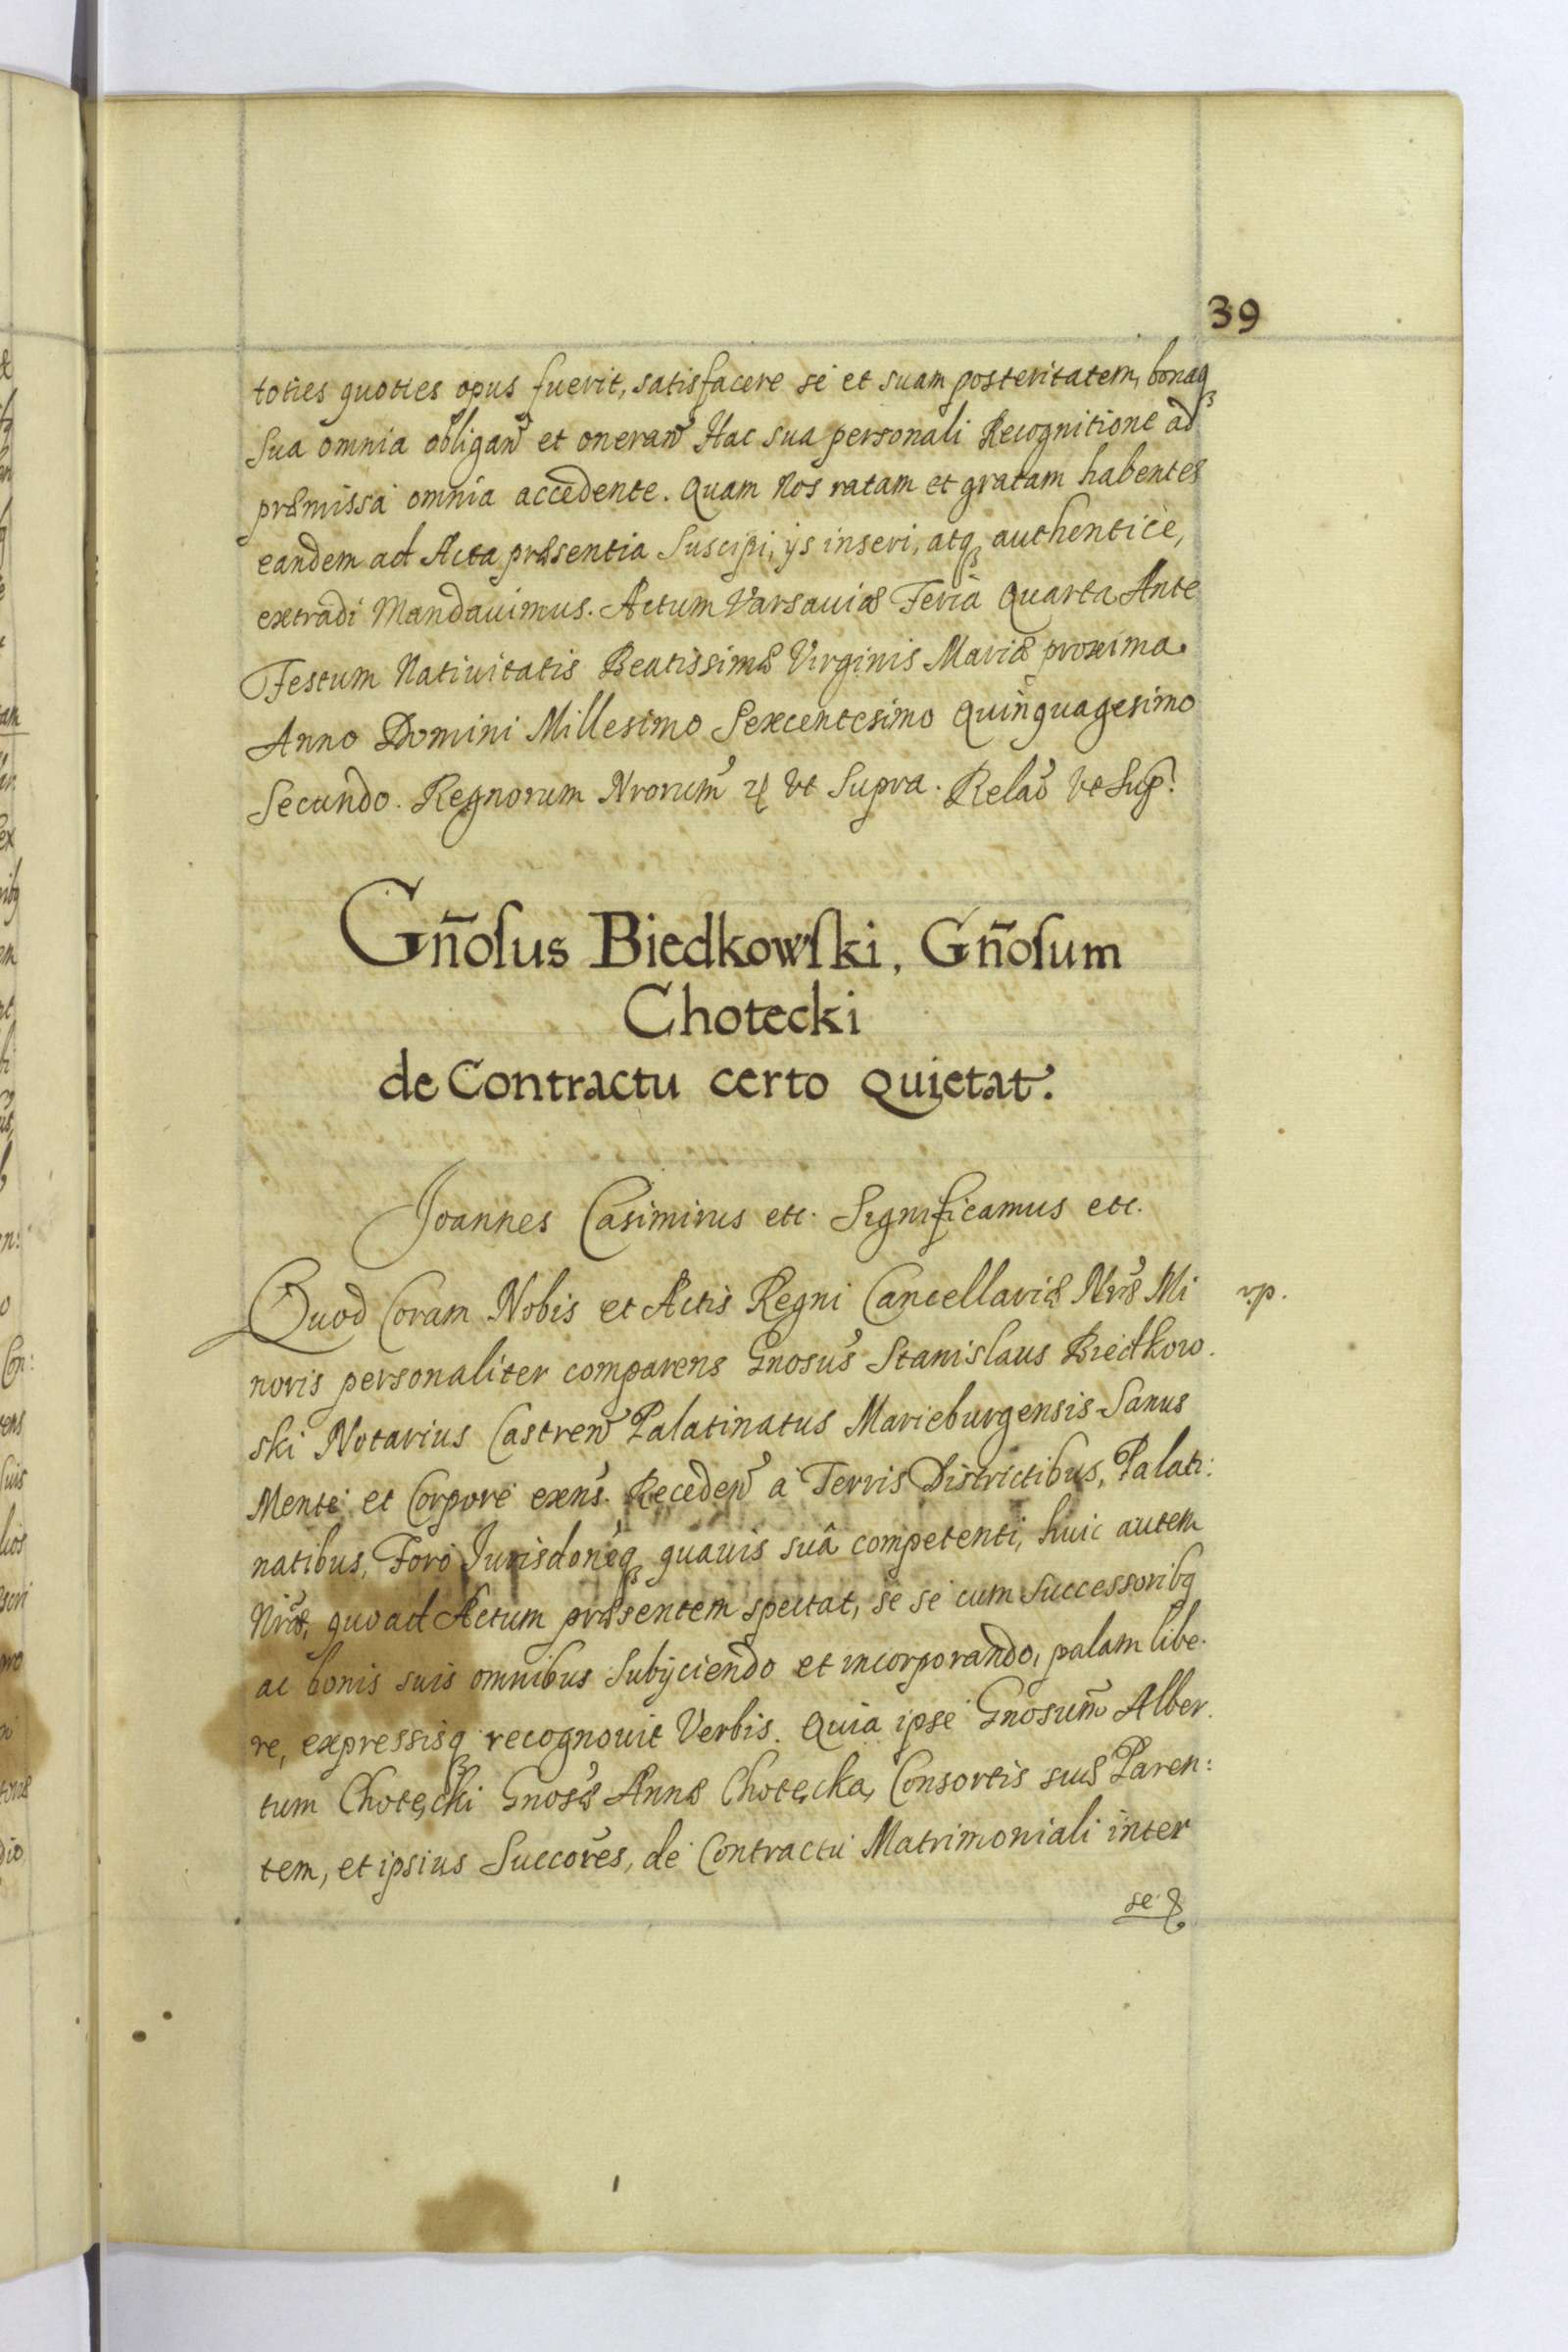 39
toties quoties opus fuerit, satisfacere se et suam posteritatem, bonaq
Sua omnia obligan̄ et oneran̄ Hac sua personali Recognitione ad
præmissa omnia accedente. Quam Nos ratam et gratam habentes
eandem ad Acta præsentia Suscipi, ijs inseri, atq authentice,
extradi Mandavimus. Actum Varsaviæ Feria Quarta Ante
Festum Nativitatis Beatissimæ Virginis Mariæ proxima.
Anno Domini Millesimo Sexcentesimo Quinquagesimo
Secundo. Regnorum Nrorum̄ ut Supra. Relaō ut Sup:
Gn̄oſus Biedkowſki, Gn̄oſum
Chotecki
de Contractu certo Quietat.
Joannes Casimirus etc. Significamus etc.
Quod Coram Nobis et Actis Regni Cancellariæ Nr̄æ Mi
rp.
noris personaliter comparens Gnosus̄ Stanislaus Biedkow.
ski Notarius Castren̄ Palatinatus Marieburgensis Sanus
Mente et Corpore exn̄s. Receden̄ a Terris Districtibus, Palati:
natibus, Foro Jurisdon̄eq quavis suâ competenti, huic autem
Nr̄æ, quo ad Actum præsentem spectat, se se cum Successoribq
ac bonis suis omnibus Subijciendo et incorporando, palam libe.
re, expressisq recognovit Verbis. Quia ipse Gnosum̄ Alber.
tum Chotęcki Gnos̄æ Annæ Chotęcka, Consortis suæ Paren:
tem, et ipsius Succor̄es, de Contractu Matrimoniali inter
se &